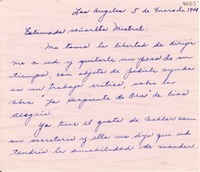 Los Angeles 5 de Enero de, 1948
Estimada señorita Mistral:
Me tomo la libertad de dirijir
me a ud y quitarle un poco de su
tiempo, con objeto de pedirle ayuda
en un trabajo crítico, sobre la
obra "La Serpiente de Oro" de Ciro
Alegría.
Ya tuve el gusto de hablar con
su secretaria y ella me dijo que ud
tendría la amabilidad de mandar